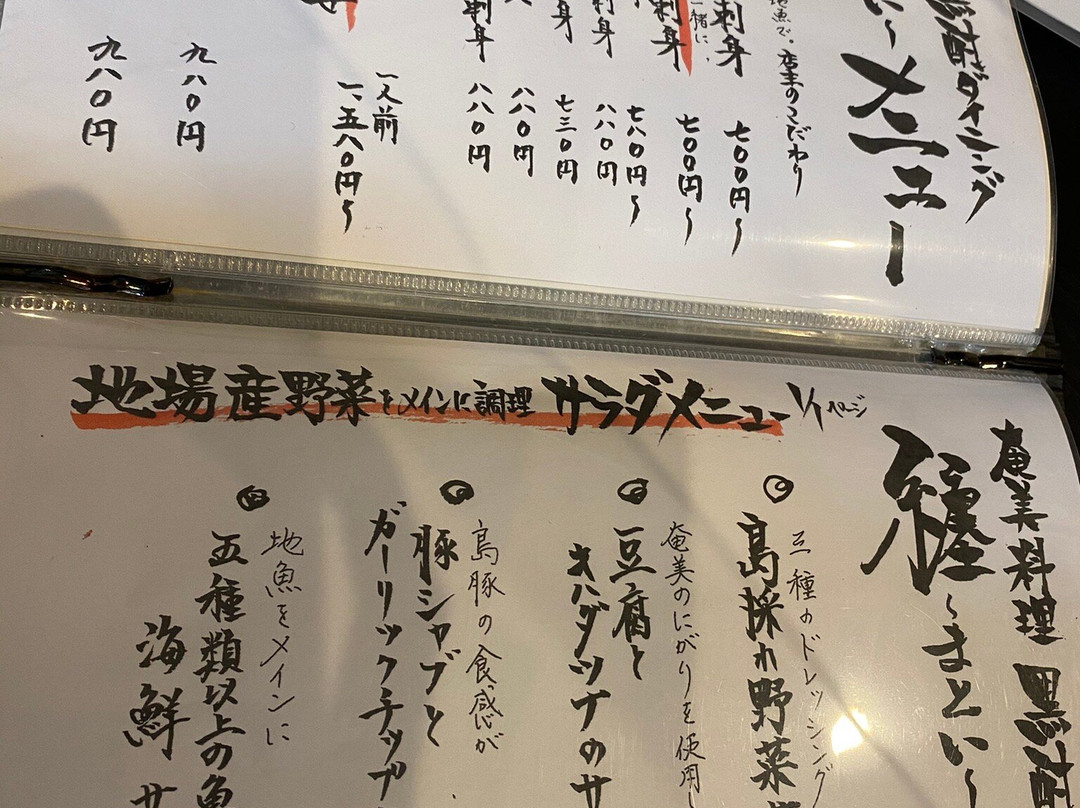 黒酎ダイニング
い〜
メニュー
地魚で、店主のこだわり
刺身
七〇〇円〜
一緒に
刺身
七〇〇円〜
七八〇円〜
刺身
八八〇円
身
七三〇円
八八〇円
刺身
八八〇円
一人前
一、五八〇円〜
九八〇円
九八〇円
地場産野菜をメインに調理 サラダメニュー 1/1ページ
奄美料理 黒酎
纏〜まとい〜
三種のドレッシング
島採れ野菜
奄美のにがりを使用し
豆腐と
キハダツナのサ
島豚の食感が
豚シャブと
ガーリックチップ
地魚をメインに
五種類以上の魚
海鮮サ